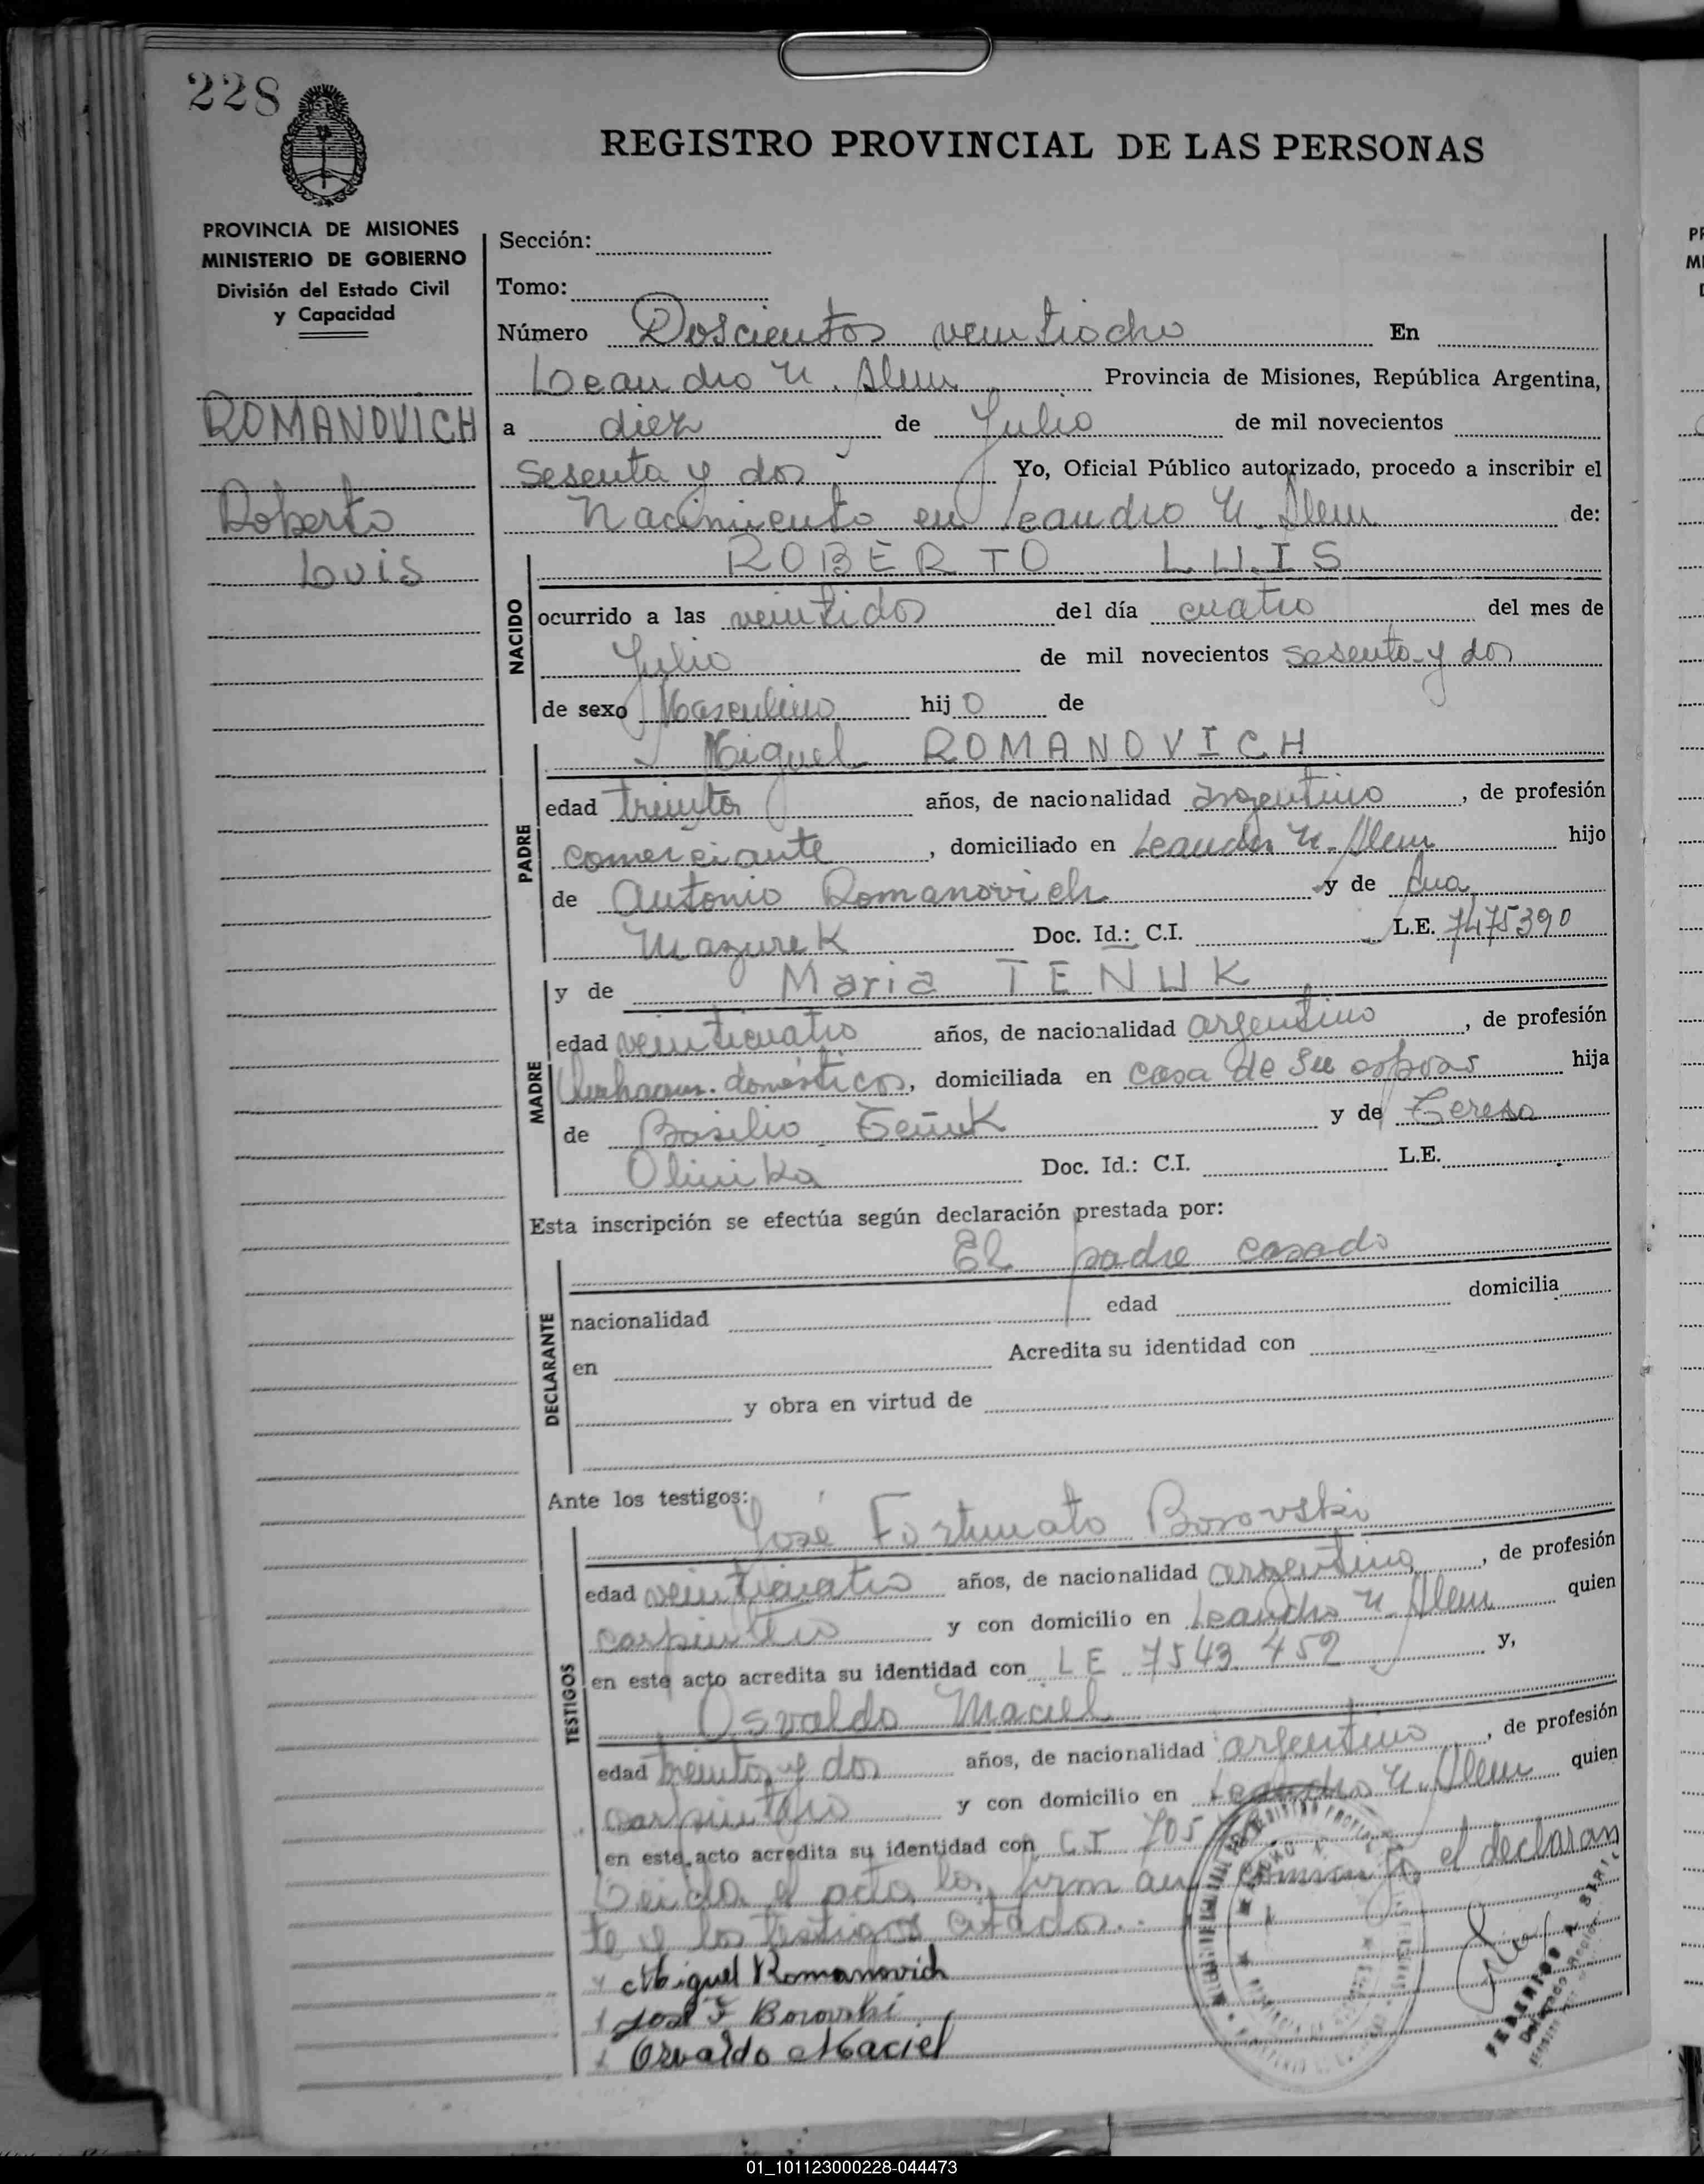 228
REGISTRO PROVINCIAL DE LAS PERSONAS
PROVINCIA DE MISIONES
MINISTERIO DE GOBIERNO
División del Estado Civil
y Capacidad
ROMANOVICH
Roberto
Luis
Sección:
Tomo:
Número Doscientos veintiocho En
Leandro N. Alem Provincia de Misiones, República Argentina,
a diez de Julio de mil novecientos
sesenta y dos Yo, Oficial Público autorizado, procedo a inscribir el
Nacimiento en Leandro N. Alem de:
NACIDO
ROBERTO LUIS
ocurrido a las veintidos del día cuatro del mes de
Julio de mil novecientos sesenta y dos
de sexo Masculino hijo de
PADRE
Miguel ROMANOVICH
edad treinta años, de nacionalidad argentino, de profesión
comerciante, domiciliado en Leandro N. Alem hijo
de Antonio Romanovich y de Ana
Mazurek Doc. Id.: C.I. L.E. 7475390
MADRE
y de Maria TENUK
edad veinticuatro años, de nacionalidad argentino, de profesión
domésticos, domiciliada en casa de su esposo hija
de Basilio Tenuk y de Teresa
Olinika Doc. Id.: C.I. L.E.
Esta inscripción se efectúa según declaración prestada por:
DECLARANTE
El padre casado
nacionalidad edad domicilia
en Acredita su identidad con
y obra en virtud de
Ante los testigos:
TESTIGOS
José Fortunato Borovski
edad veinticuatro años, de nacionalidad argentino, de profesión
carpintero y con domicilio en Leandro N. Alem quien
en este acto acredita su identidad con LE 7543 452 y,
Osvaldo Maciel
edad treinta y dos años, de nacionalidad argentino, de profesión
carpintero y con domicilio en Leandro N. Alem quien
en este acto acredita su identidad con CI 705
Leida el acta la firman conmigo el declaran
te y los testigos citados.
Miguel Romanovich
José F Borovski
Osvaldo Maciel
01_101123000228-044473